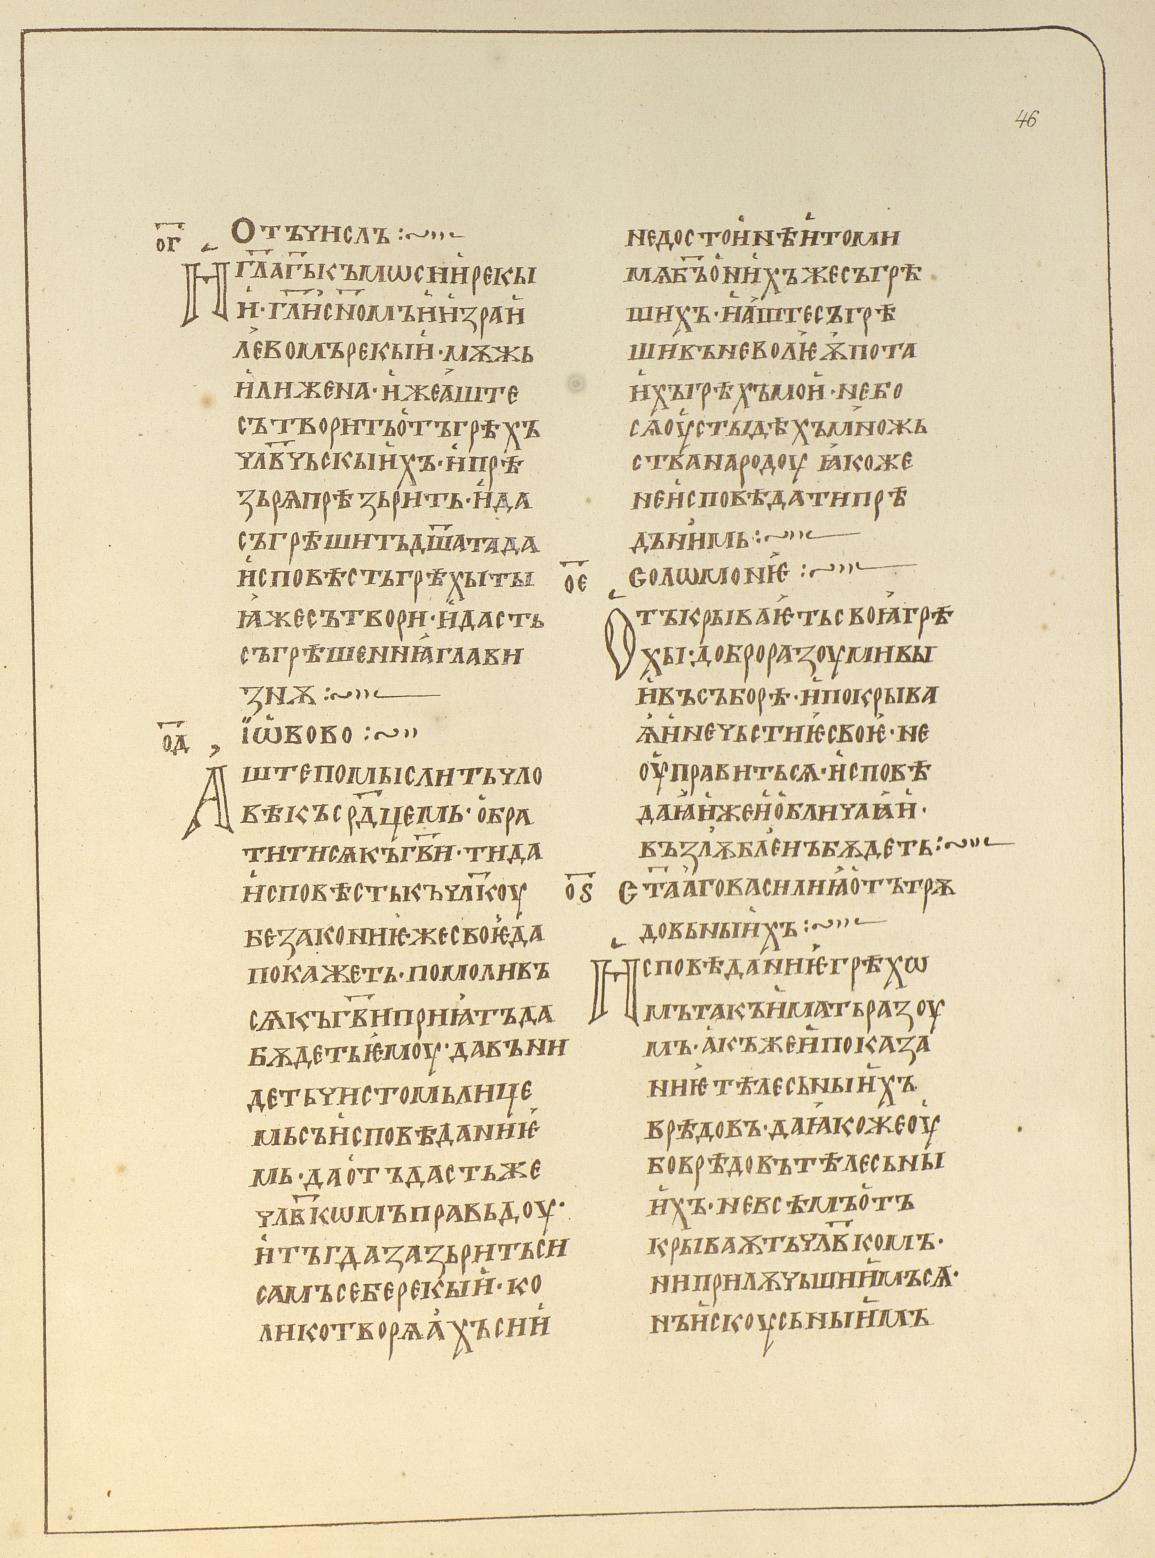 46
ог҃ Отъчислъ :~
И҆гл҃аг҃ькъмѡсии҆рекы
и҆·гл҃и҆сн҃омъи҆и҆зраи҆
л҄евомърекыи҆·мѫжь
и҆лижена·и҆жеа҆ште
сътворитьо҆тъгрѣхъ
члв҃чьскыи҆хъ·и҆прѣ
зьрѧпрѣзьрить·и҆да
съгрѣшитьдш҃атада
и҆сповѣстьгрѣхыты
ꙗ҆жесътвори·и҆дасть
съгрѣшениꙗ҆глави
знѫ :~
о҃д іѡ҆вово :~
А҆штепомыслитьчло
вѣкъср҃дцемь·о҆бра
титисѧкъгв҃и·тида
и҆сповѣстькъчлк҃оу
безакониѥ҆жесвоѥ҆да
покажеть·помоливъ
сѧкъгв҃иприꙗ҆тъда
бѫдетьѥ҆моу·давъни
детьчистомьлице
мьсъи҆сповѣданиѥ҆
мь·дао҆тъдастьже
члв҃кѡмъправьдоу·
и҆тъгдазазьритьси
самъсеберекыи҆·ко
ликотворѧа҆хъсии҆
недостои҆нѣи҆томи
мѧб҃ъо҆ни҆хъжесъгрѣ
шихъ·и҆а҆штесъгрѣ
шивъневол҄ѥ҆ѫ҆пота
и҆хъгрѣхъмои҆·небо
сѧо҆устыдѣхъмножь
стванародоу ꙗ҆коже
неи҆сповѣдатипрѣ
дъни҆мь :~
о҃е Солѡмониѥ҆ :~
Отъкрываѥ҆тьсвоꙗ҆грѣ
хы·доброразоумивы
и҆въсъборѣ·и҆покрыва
ѩ҆и҆нечьстиѥ҆своѥ҆·не
о҆управитьсѧ·и҆сповѣ
даꙗ҆и҆жеи҆о҆бличаꙗ҆и҆·
възл҄ѫбл҄енъбѫдеть :~
о҃ѕ Ст҃аа҆говасилиꙗ҆о҆тътрѫ
довьныи҆хъ :~
И҆сповѣданиѥ҆грѣхѡ
мътакъи҆матьразоу
мъ·а҆къжеи҆показа
ниѥ҆тѣлесьныи҆хъ
врѣдовъ·даꙗ҆кожео҆у
боврѣдовътѣлесьны
и҆хъ·невсѣмъо҆тъ
крываѭтьчлв҃комъ·
ниприлѫчьшии҆мъсѧ·
нъи҆скоусьныи҆мъ